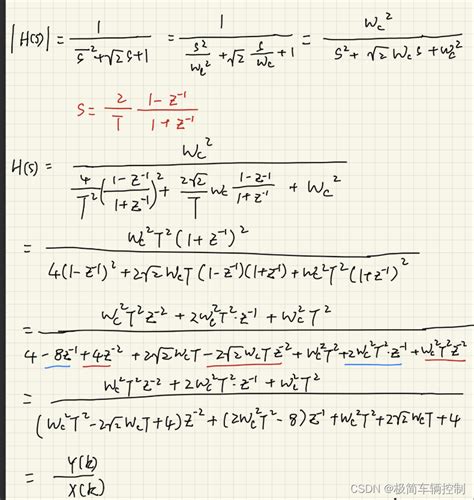 |H(s)| = 1/(s̄²+√2 s+1) = 1/(s²/ω_c² + √2 s/ω_c + 1) = ω_c²/(s² + √2 ω_c s + ω_c²)
s = 2/T (1-z⁻¹)/(1+z⁻¹)
H(s) = ω_c²/(4/T² ((1-z⁻¹)/(1+z⁻¹))² + 2√2/T ω_c (1-z⁻¹)/(1+z⁻¹) + ω_c²)
= ω_c²T²(1+z⁻¹)²/(4(1-z⁻¹)² + 2√2 ω_cT (1-z⁻¹)(1+z⁻¹) + ω_c²T²(1+z⁻¹)²)
= (ω_c²T²z⁻² + 2ω_c²T²·z⁻¹ + ω_c²T²)/(4 - 8z⁻¹ + 4z⁻² + 2√2 ω_cT - 2√2 ω_cT z⁻² + ω_c²T² + 2ω_c²T²·z⁻¹ + ω_c²T²z⁻²)
= (ω_c²T²z⁻² + 2ω_c²T²·z⁻¹ + ω_c²T²)/((ω_c²T² - 2√2 ω_cT + 4)z⁻² + (2ω_c²T² - 8)z⁻¹ + ω_c²T² + 2√2 ω_cT + 4)
= Y(k)/X(k)
CSDN @极简车辆控制